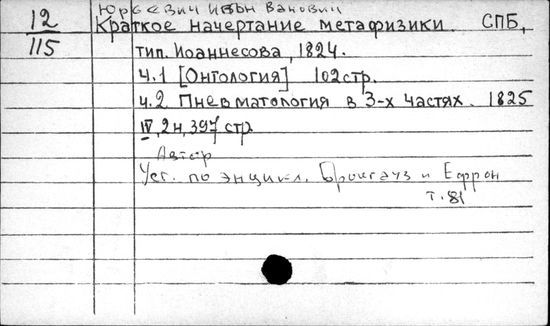 Юрьевич Иван Иванович
12
115
Краткое начертание метафизики. СПБ,
тип. Иоаннесова, 1824.
ч.1 [Онтология] 102 стр.
ч.2. Пневматология в 3-х частях. 1825
IV, 2н, 397 стр
Автор
Уст. по энцикл. Брокгауз и Ефрон
т. 81